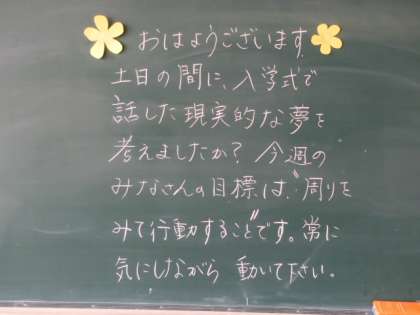 おはようございます
土日の間に、入学式で
話した現実的な夢を
考えましたか？今週の
みなさんの目標は、"周りを
みて行動すること"です。常に
気にしながら動いて下さい。